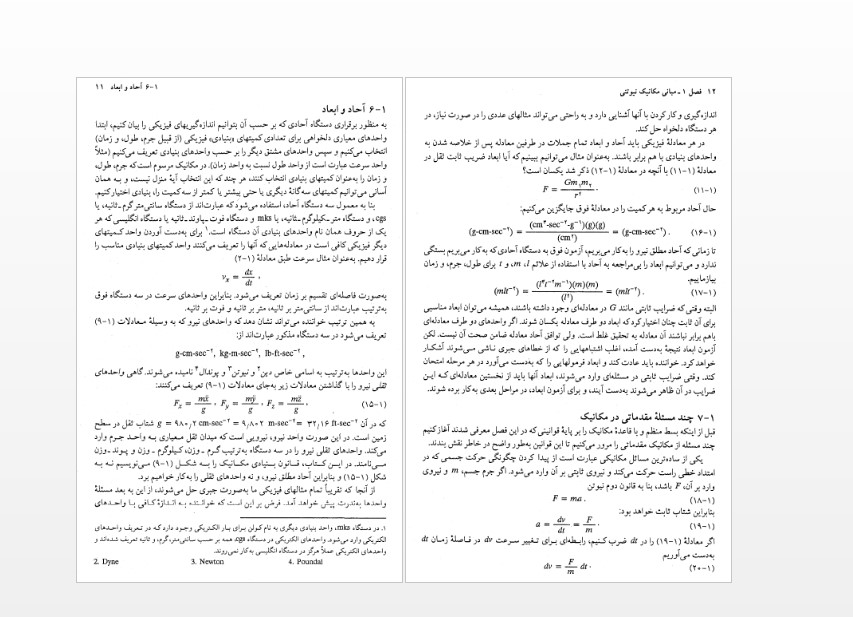 ۱-۶ آحاد و ابعاد ۱۱
۱-۶ آحاد و ابعاد
به منظور برقراری دستگاه آحادی که بر حسب آن بتوانیم اندازه‌گیریهای فیزیکی را بیان کنیم، ابتدا
واحدهای معیاری دلخواهی برای تعدادی کمیتهای «بنیادی» فیزیکی (از قبیل جرم، طول، و زمان)
انتخاب می‌کنیم و سپس واحدهای مشتق دیگر را بر حسب واحدهای بنیادی تعریف می‌کنیم (مثلاً
واحد سرعت عبارت است از واحد طول نسبت به واحد زمان). در مکانیک مرسوم است که جرم، طول،
و زمان را به‌عنوان کمیتهای بنیادی انتخاب کنند، هر چند که این انتخاب آیهٔ منزل نیست، و به همان
آسانی می‌توانیم کمیتهای سه‌گانهٔ دیگری یا حتی بیشتر یا کمتر از سه کمیت را، بنیادی اختیار کنیم.
بنا به معمول سه دستگاه آحاد، استفاده می‌شود که عبارت‌اند از دستگاه سانتی‌متر گرم-ثانیه، یا
cgs، و دستگاه متر-کیلوگرم-ثانیه، یا mks و دستگاه فوت-پاوند-ثانیه یا دستگاه انگلیسی که هر
یک از حروف همان نام واحدهای بنیادی آن دستگاه است.۱ برای به‌دست آوردن واحد کمیتهای
دیگر فیزیکی کافی است در معادله‌هایی که آنها را تعریف می‌کنند واحد کمیتهای بنیادی مناسب را
قرار دهیم. به‌عنوان مثال سرعت طبق معادلهٔ (۱-۲)
vₓ = dx/dt .
به‌صورت فاصله‌ای تقسیم بر زمان تعریف می‌شود. بنابراین واحدهای سرعت در سه دستگاه فوق
به‌ترتیب عبارت‌اند از سانتی‌متر بر ثانیه، متر بر ثانیه و فوت بر ثانیه.
به همین ترتیب خواننده می‌تواند نشان دهد که واحدهای نیرو که به وسیلهٔ معادلات (۱-۹)
تعریف می‌شود در سه دستگاه مذکور عبارت‌اند از:
g-cm-sec⁻², kg-m-sec⁻², lb-ft-sec⁻²,
این واحدها به‌ترتیب به اسامی خاص دین۲ و نیوتن۳ و پوندال۴ نامیده می‌شوند. گاهی واحدهای
ثقلی نیرو را با گذاشتن معادلات زیر به‌جای معادلات (۱-۹) تعریف می‌کنند:
Fₓ = mẍ/g , F_y = mÿ/g , F_z = mz̈/g . (۱-۱۵)
که در آن g = ۹۸۰٫۲ cm-sec⁻² = ۹٫۸۰۲ m-sec⁻² = ۳۲٫۱۶ ft-sec⁻² شتاب ثقل در سطح
زمین است. در این صورت واحد نیرو، نیرویی است که میدان ثقل معیاری به واحد جرم وارد
می‌کند. واحدهای ثقلی نیرو را در سه دستگاه به‌ترتیب گرم - وزن، کیلوگرم - وزن و پوند-وزن
می‌نامند. در این کتاب، قانون بنیادی مکانیک را به شکل (۱-۹) می‌نویسیم نه به
شکل (۱-۱۵) و بنابراین آحاد مطلق نیرو، و نه واحدهای ثقلی را به‌کار خواهیم برد.
از آنجا که تقریباً تمام مثالهای فیزیکی ما به‌صورت جبری حل می‌شوند، از این به بعد مسئلهٔ
واحدها به‌ندرت پیش خواهد آمد. فرض بر این است که خواننده به اندازهٔ کافی با واحدهای
۱. در دستگاه mks، واحد بنیادی دیگری به نام کولن برای بار الکتریکی وجود دارد که در تعریف واحدهای
الکتریکی وارد می‌شود. واحدهای الکتریکی در دستگاه cgs، همه بر حسب سانتی‌متر، گرم، و ثانیه تعریف شده‌اند و
واحدهای الکتریکی عملاً هرگز در دستگاه انگلیسی به‌کار نمی‌روند.
2. Dyne 3. Newton 4. Poundal
۱۲ فصل ۱ ـ مبانی مکانیک نیوتنی
اندازه‌گیری و کار کردن با آنها آشنایی دارد و به راحتی می‌تواند مثالهای عددی را در صورت نیاز، در
هر دستگاه دلخواه حل کند.
در هر معادلهٔ فیزیکی باید آحاد و ابعاد تمام جملات در طرفین معادله پس از خلاصه شدن به
واحدهای بنیادی با هم برابر باشند. به‌عنوان مثال می‌توانیم ببینیم که آیا ابعاد ضریب ثابت ثقل در
معادلهٔ (۱-۱۱) با آنچه در معادلهٔ (۱-۱۲) ذکر شد یکسان است؟
F = Gm₁m₂/r² . (۱-۱۱)
حال آحاد مربوط به هر کمیت را در معادلهٔ فوق جایگزین می‌کنیم:
(g-cm-sec⁻²) = (cm³-sec⁻²-g⁻¹)(g)(g)/(cm²) = (g-cm-sec⁻²) . (۱-۱۶)
تا زمانی که آحاد مطلق نیرو را به‌کار می‌بریم، آزمون فوق به دستگاه آحادی که به‌کار می‌بریم بستگی
ندارد و می‌توانیم ابعاد را بی‌مراجعه به آحاد با استفاده از علائم l، m، و t برای طول، جرم، و زمان
بیازماییم.
(mlt⁻²) = (l³t⁻²m⁻¹)(m)(m)/(l²) = (mlt⁻²) . (۱-۱۷)
البته وقتی که ضرایب ثابتی مانند G در معادله‌ای وجود داشته باشند، همیشه می‌توان ابعاد مناسبی
برای آن ثابت چنان اختیار کرد که ابعاد دو طرف معادله یکسان شوند. اگر واحدهای دو طرف معادله‌ای
باهم برابر نباشند آن معادله به تحقیق غلط است. ولی توافق آحاد معادله ضامن صحت آن نیست. لکن
آزمون ابعاد نتیجهٔ به‌دست آمده، اغلب اشتباههایی را که از خطاهای جبری ناشی می‌شوند آشکار
خواهد کرد. خواننده باید عادت کند و ابعاد فرمولهایی را که به‌دست می‌آورد در هر مرحله امتحان
کند. وقتی ضرایب ثابتی در مسئله‌ای وارد می‌شوند، ابعاد آنها باید از نخستین معادله‌ای که این
ضرایب در آن ظاهر می‌شوند به‌دست آیند، و برای آزمون ابعاد، در مراحل بعدی به‌کار برده شوند.
۱-۷ چند مسئلهٔ مقدماتی در مکانیک
قبل از اینکه بسط منظم و با قاعدهٔ مکانیک را بر پایهٔ قوانینی که در این فصل معرفی شدند آغاز کنیم
چند مسئله از مکانیک مقدماتی را مرور می‌کنیم تا این قوانین به‌طور واضح در خاطر نقش بندند.
یکی از ساده‌ترین مسائل مکانیکی عبارت است از پیدا کردن چگونگی حرکت جسمی که در
امتداد خطی راست حرکت می‌کند و نیروی ثابتی بر آن وارد می‌شود. اگر جرم جسم، m و نیروی
وارد بر آن، F باشد، بنا به قانون دوم نیوتن
F = ma . (۱-۱۸)
بنابراین شتاب ثابت خواهد بود:
a = dv/dt = F/m . (۱-۱۹)
اگر معادلهٔ (۱-۱۹) را در dt ضرب کنیم، رابطه‌ای برای تغییر سرعت dv در فاصلهٔ زمان dt
به‌دست می‌آوریم
dv = F/m dt . (۱-۲۰)